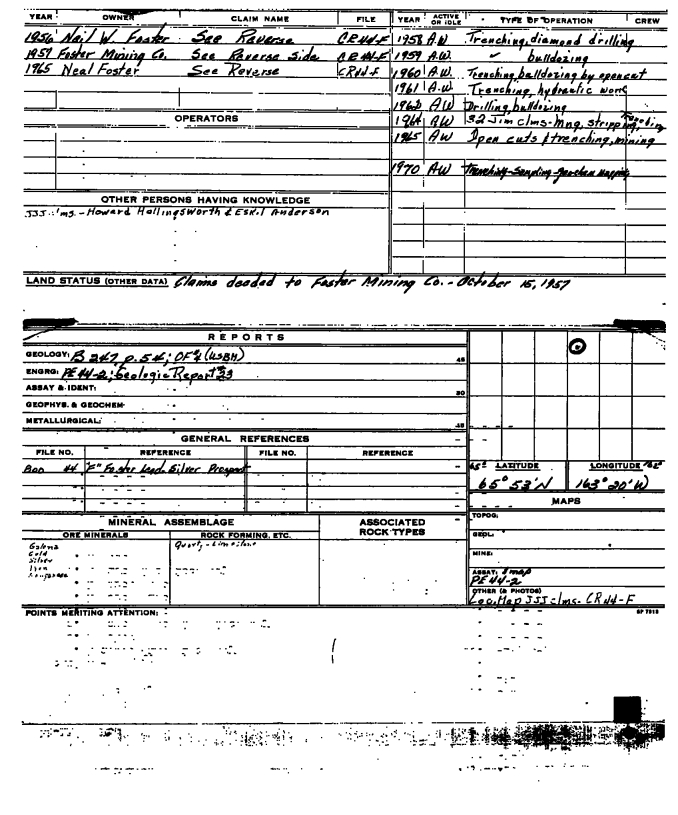 YEAR OWNER CLAIM NAME FILE
1956 Neil W. Foster See Reverse CR44-F
1957 Foster Mining Co. See Reverse Side CR44-F
1965 Neal Foster See Reverse CR44-F
OPERATORS
OTHER PERSONS HAVING KNOWLEDGE
JJJ - Howard Hollingsworth & Eskil Anderson
YEAR ACTIVE OR IDLE TYPE OF OPERATION CREW
1958 A.W Trenching, diamond drilling
1959 A.W. " bulldozing
1960 A.W. Trenching, bulldozing by opencut
1961 A.W. Trenching, hydraulic work
AW Drilling, bulldozing
1964 AW 32 Jim clms-Mng, stripping,
1965 AW Open cuts & trenching, mining
1970 AW Trenching-Sampling-geochem mapping
LAND STATUS (OTHER DATA) Claims deeded to Foster Mining Co. - October 15, 1957
REPORTS
GEOLOGY: B 247 p. 54; OF (USBM)
ENGRG: PE 44-2; Geologic Report #23
ASSAY & IDENT:
GEOPHYS. & GEOCHEM
METALLURGICAL:
GENERAL REFERENCES
FILE NO. REFERENCE FILE NO. REFERENCE
Ben 44 "F" Foster Lead-Silver Prospect
MINERAL ASSEMBLAGE
ORE MINERALS ROCK FORMING, ETC.
Galena Quartz - Limestone
Gold
Silver
Iron
ASSOCIATED ROCK TYPES
65° LATITUDE LONGITUDE 162°
65° 53' N 163° 20' W
MAPS
TOPOG.
GEOL.
MINE:
ASSAY: map
PE 44-2
OTHER (& PHOTOS)
Loc. Map JJJ clms. CR 44-F
POINTS MERITING ATTENTION: